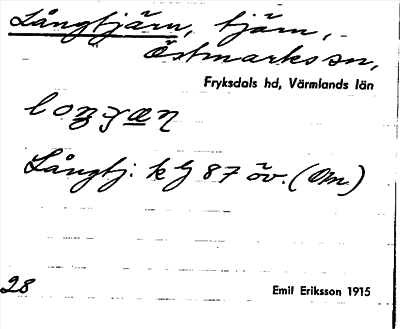 Långtjärn, tjärn,
Östmarks sn,
Fryksdals hd, Värmlands län
Långtj: k 87 öv. (Om)
28
Emil Eriksson 1915